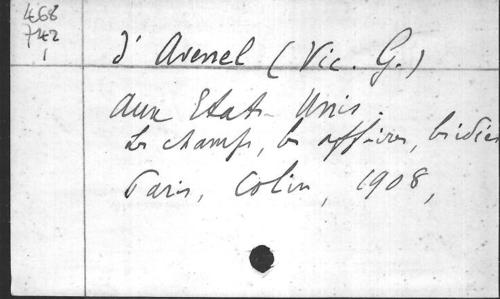 468
742
1
d'Avenel (Vic. G.)
Aux Etats-Unis.
Les champs, les affaires, les idées
Paris, Colin, 1908,